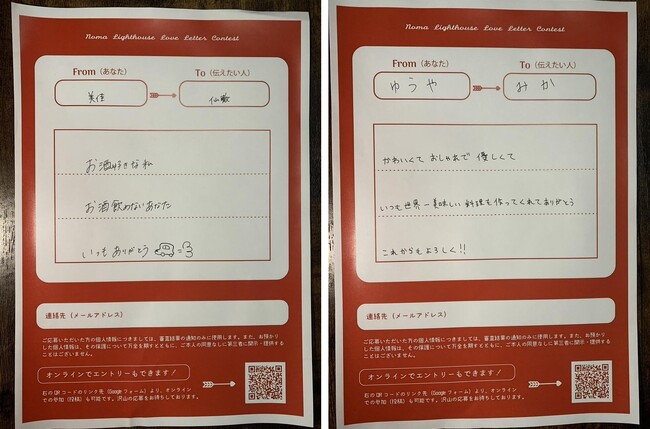 Noma Lighthouse Love Letter Contest
From（あなた）
To（伝えたい人）
美佳
お酒好きな私
お酒飲めないあなた
いつもありがとう
連絡先（メールアドレス）
ご応募いただいた方の個人情報につきましては、審査結果の通知のみに使用します。また、お預かり
した個人情報は、その保護について万全を期すとともに、ご本人の同意なしに第三者に開示・提供する
ことはございません。
オンラインでエントリーもできます！
右のQRコードのリンク先（Googleフォーム）より、オンライン
での参加（投稿）も可能です。沢山の応募をお待ちしております。
Noma Lighthouse Love Letter Contest
From（あなた）
To（伝えたい人）
ゆうや
みか
かわいくて おしゃれで 優しくて
いつも世界一美味しい料理を作ってくれてありがとう
これからもよろしく!!
連絡先（メールアドレス）
ご応募いただいた方の個人情報につきましては、審査結果の通知のみに使用します。また、お預かり
した個人情報は、その保護について万全を期すとともに、ご本人の同意なしに第三者に開示・提供する
ことはございません。
オンラインでエントリーもできます！
右のQRコードのリンク先（Googleフォーム）より、オンライン
での参加（投稿）も可能です。沢山の応募をお待ちしております。